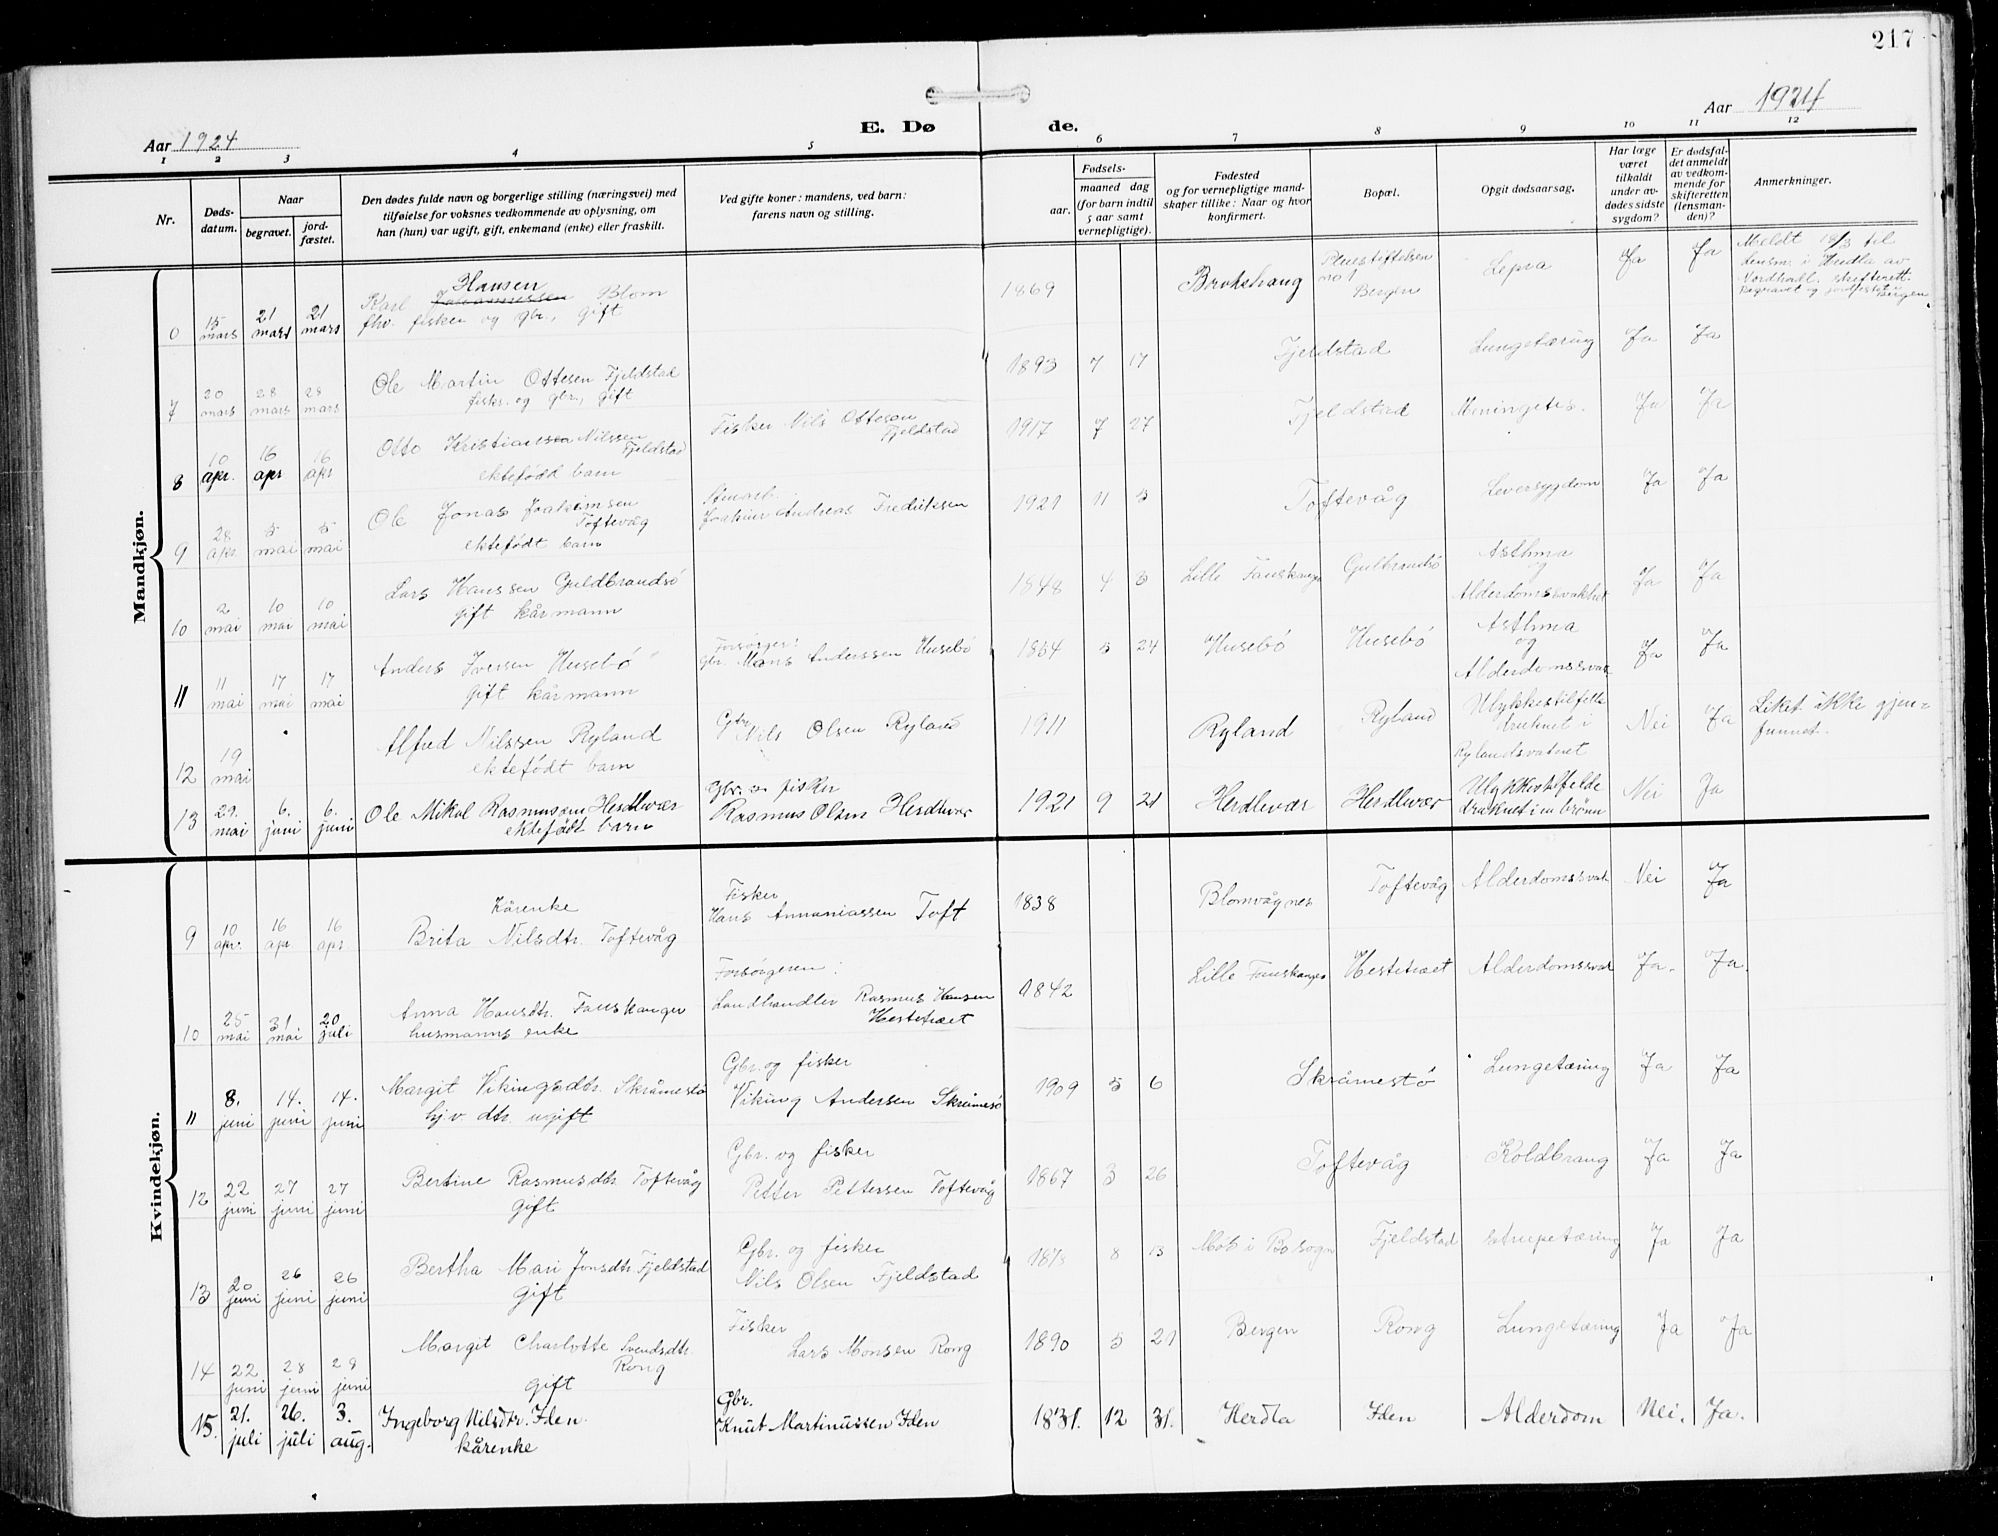 217
Aar 1924
E. Dø de.
Aar 1924
1 2 3 4 5 6 7 8 9 10 11 12
Nr.
Døds-
datum.
Naar
begravet.
jord-
fæstet.
Den dødes fulde navn og borgerlige stilling (næringsvei) med
tilføielse for voksnes vedkommende av oplysning, om
han (hun) var ugift, gift, enkemand (enke) eller fraskilt.
Ved gifte koner: mandens, ved barn:
farens navn og stilling.
Fødsels-
aar.
maaned dag
(for barn indtil
5 aar samt
vernepligtige).
Fødested
og for vernepligtige mand-
skaper tillike: Naar og hvor
konfirmert.
Bopæl.
Opgit dødsaarsag.
Har læge
været
tilkaldt
under av-
dødes sidste
sygdom?
Er dødsfal-
det anmeldt
av vedkom-
mende for
skifteretten
(lensman-
den)?
Anmerkninger.
Mandkjøn.
6 15 mars 21 mars 21 mars
Hansen
Karl Johannessen Blom
fhv. fisker og gbr., gift
1869 Brokshaug
Pleiestiftelsen
no 1
Bergen
Lepra Ja Ja
Meldt 18/3 til
lensm. i Herdla av
Nordhordl. skifterett.
Begravet og jordfestet i Bergen
7 20 mars 28 mars 28 mars
Ole Martin Ottesen Fjeldstad
fisker og gbr., gift
1893 7 17 Fjeldstad Lungetæring Ja Ja
8 10 apr. 16 apr 16 apr
Otto Kristiansen Nilssen
Fjeldstad
ektefødd barn
Fisker Nils Ottesen
Fjeldstad
1917 7 27 Fjeldstad Meningetis. Ja Ja
9 28 apr. 5 mai 5 mai
Ole Jonas Joakimsen
Toftevåg
ektefødt barn
Stenarb.
Joakim Andreas Fredriksen
1921 11 5 Toftevåg Leversygdom Ja Ja
10 2 mai 10 mai 10 mai
Lars Hanssen Guldbrandsö
gift kårmann
1848 4 3 Lille Fauskanger Gulbrandsö
Asthma
og
Alderdomssvakhet
Ja Ja
11 11 mai 17 mai 17 mai
Anders Iversen Husebö
gift kårmann
Forsörger:
gbr. Hans Anderssen Husebö
1864 5 24 Husebö Husebö
Asthma
og
Alderdomssvak.
Ja Ja
12 19 mai
Alfred Nilssen Ryland
ektefødt barn
Gbr. Nils Olsen Ryland
1911 Ryland Ryland
Ulykkestilfelle
druknet i
Rylandsvatnet
Nei Ja
Liket ikke gjen-
funnet.
13 29. mai 6. juni 6. juni
Ole Mikal Rasmussen Herdlevær
ektefødt barn
Gbr. og fisker
Rasmus Olsen Herdlevær
1921 9 21 Herdlevær Herdlevær
Ulykkestilfelde
druknet i en brönn
Nei Ja
Kvindekjøn.
9 10 apr. 16 apr. 16 apr.
Kårenke
Brita Nilsdtr. Toftevåg
Fisker
Hans Annaniassen Toft
1838 Blomvågnes Toftevåg Alderdomssvak. Nei Ja
10 25 mai 31 mai 20 juli
Anna Hansdtr. Fauskanger
husmanns enke
Forsörgeren:
Landhandler Rasmus Hansen
Hestetræet
1842 Lille Fauskanger Hestetræet Alderdomssvak Ja. Ja.
11 8. juni 14. juni 14. juni
Margit Vikingsdtr. Skråmestö
hjv. dtr. ugift
Gbr. og fisker
Viking Andersen Skråmestö
1909 5 6 Skråmestö Lungetæring Ja Ja
12 22 juni 27 juni 27 juni
Bertine Rasmusdtr. Toftevåg
gift
Gbr. og fisker
Petter Pettersen Toftevåg
1867 3 26 Toftevåg Koldbrang Ja Ja
13 20 juni 26 juni 26 juni
Bertha Mari Jonsdtr. Fjeldstad
gift
Gbr. og fisker
Nils Olsen Fjeldstad
8 13 Fjeldstad strupetæring Ja Ja
14 22 juni 28 juni 29 juni
Margit Charlotte Svendsdtr.
Rong
gift
Fisker
Lars Monsen Rong
1890 5 21 Bergen Rong Lungetæring Ja Ja
15. 21. juli 26. juli 3. aug.
Ingeborg Nilsdtr. Iden.
kårenke
Gbr.
Knut Martinussen Iden
1831. 12 31. Herdla Iden Alderdom Nei. Ja.